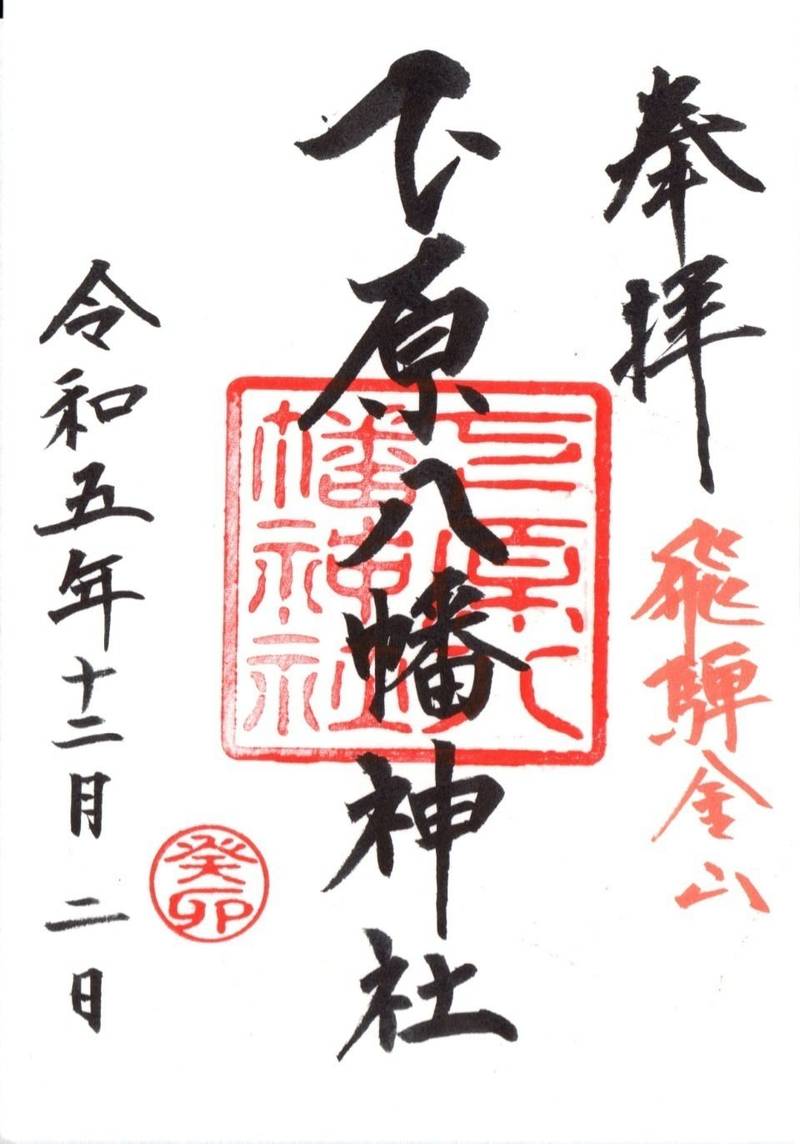 奉拝
飛騨金山
下原八幡神社
下原八
幡神社
令和五年十二月二日
癸卯